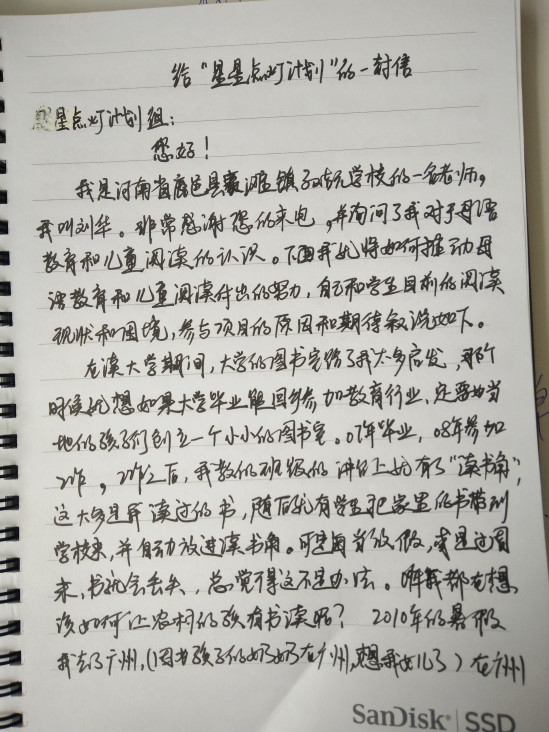 给“星星点灯计划”的一封信
星点灯计划组：
您好！
我是河南省鹿邑县 滩镇 学校的一名老师，
我叫刘华。非常感谢您的来电，并询问了我对于母语
教育和儿童阅读的认识。下面我就将如何推动母
语教育和儿童阅读付出的努力，自己和学生目前的阅读
现状和困境，参与项目的原因和期待叙说如下。
在读大学期间，大学的图书室给了我太多启发，那个
时候就想如果大学毕业能回乡参加教育行业，一定要为当
地的孩子们创立一个小小的图书室。07年毕业，08年参加
工作，工作之后，我教的班级的讲台上就有了“读书角”，
这大多是我读过的书，随后就有学生把家里的书带到
学校来，并自动放进读书角。可是周末放假，或是过周
末，书就会丢失，总觉得这不是办法。 我都在想
该如何让农村的孩有书读呢？ 2010年的暑假
我去了广州，（因为孩子的奶奶在广州，想我女儿了）在广州
SanDisk SSD